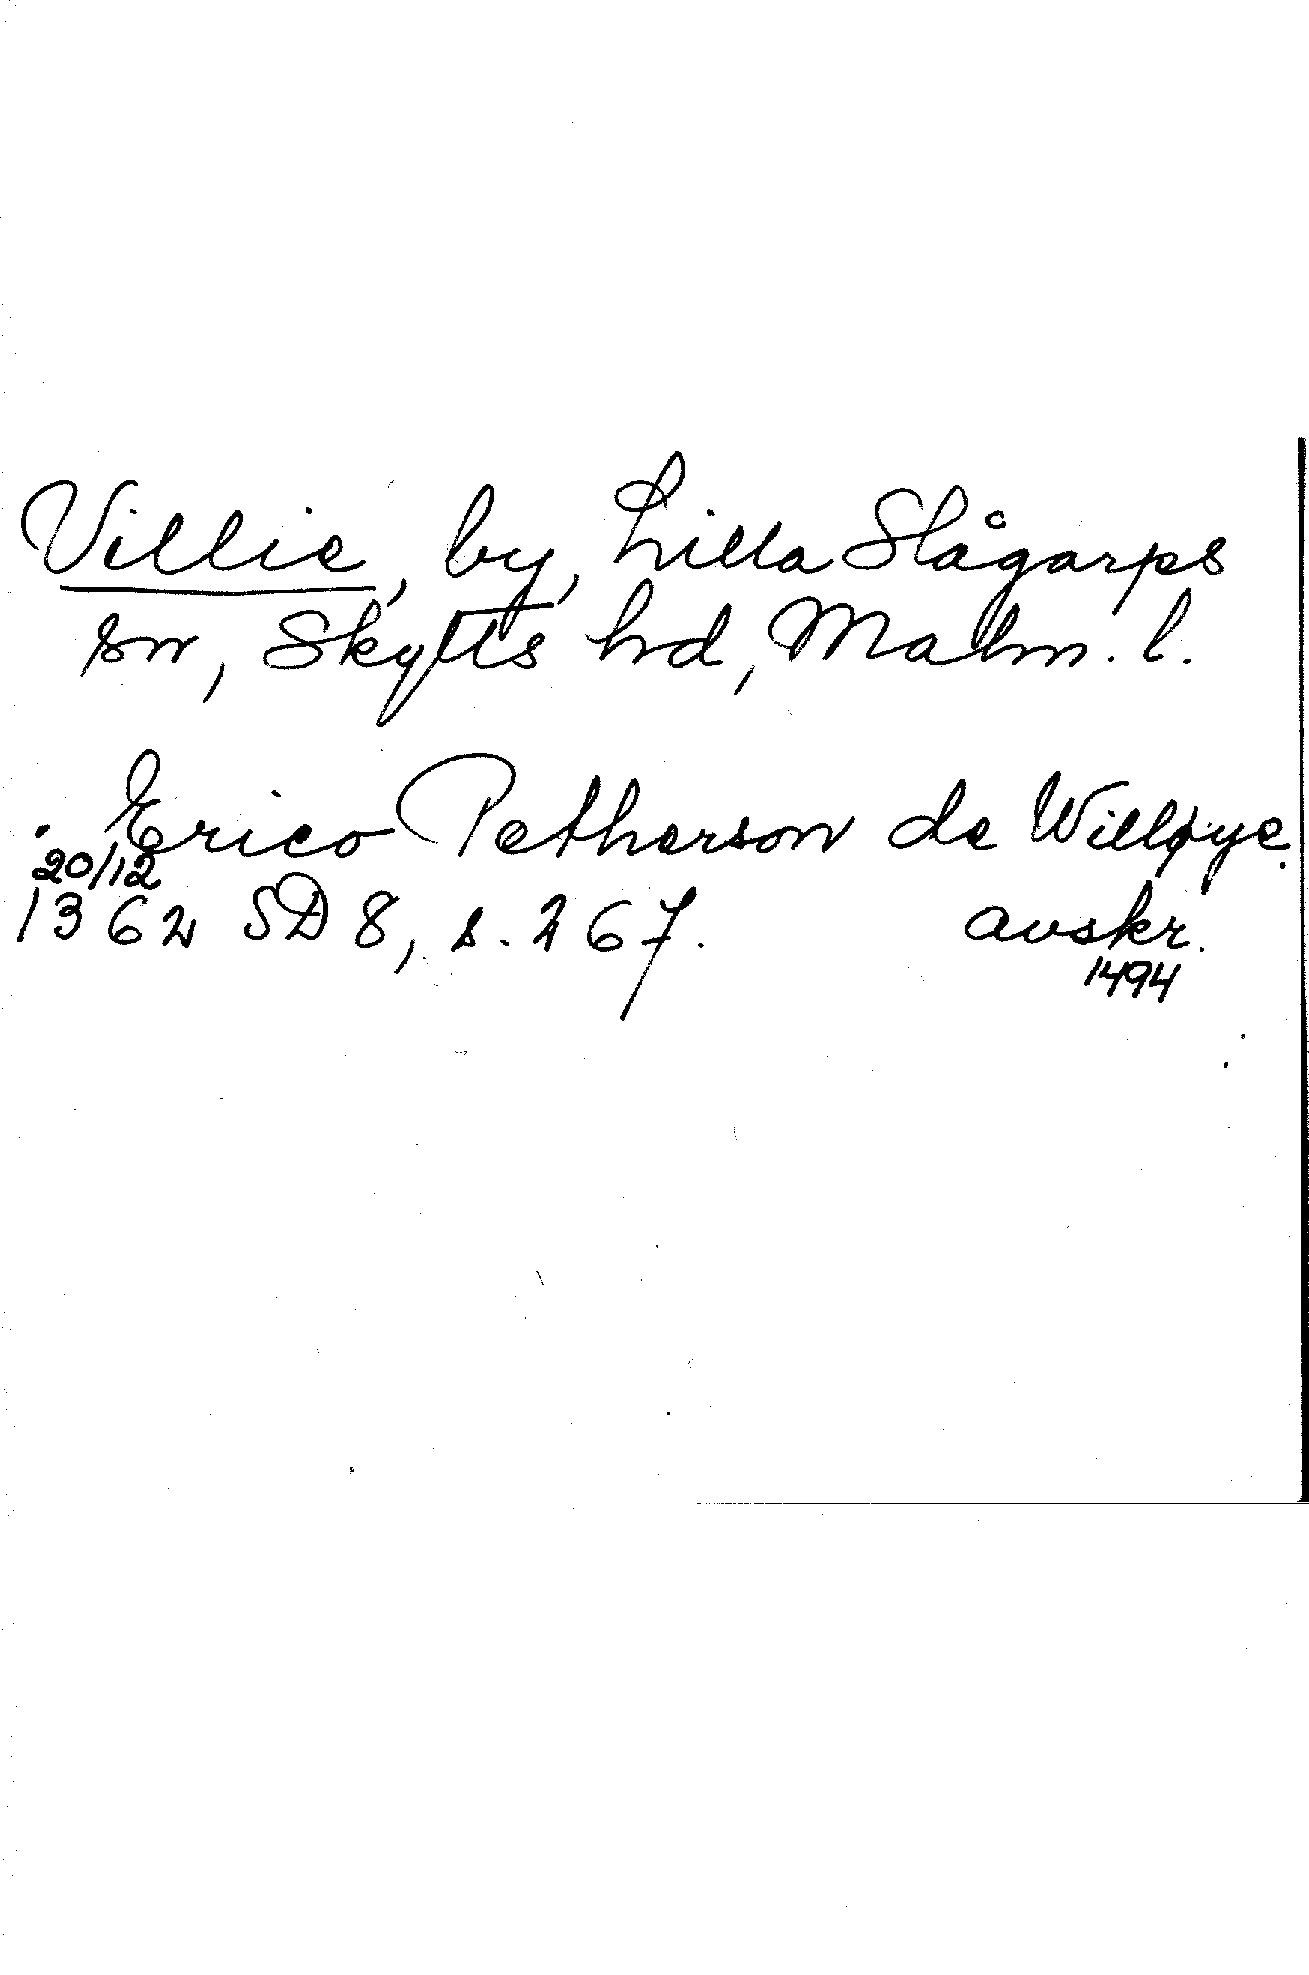 Villie, by, Lilla Slågarps
sn, Skytts hd, Malm. l.
. Erico Petherson de Willøye.
20/12
1362 SD 8, s. 267. avskr.
1494